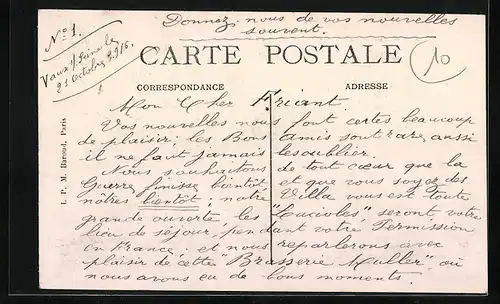 Donnez-nous de vos nouvelles
souvent.
N° 1.
Vaux s/ Seine le
21 octobre 1915.
10
CARTE POSTALE
CORRESPONDANCE
ADRESSE
Mon Cher Friant.
Vos nouvelles nous font certes beaucoup
de plaisir; les Bons amis sont rares, aussi
il ne faut jamais les oublier.
Nous souhaitons de tout cœur que la
Guerre finisse bientôt, et que vous soyez des
nôtres bientôt; notre Villa vous est Toute
grande ouverte, les "Lucioles" seront votre
lieu de séjour, pendant votre Permission
en France, et nous reparlerons avec
plaisir de cette "Brasserie Muller" où
nous avons eu de bons moments.
I. P. M. Baroud, Paris